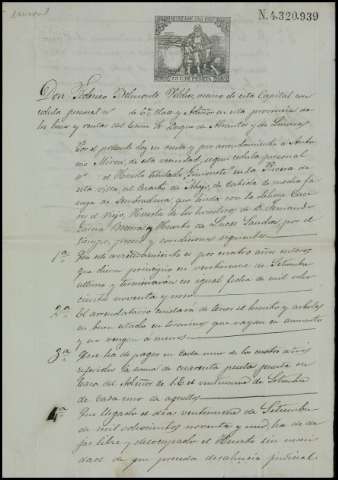 N. 4.320.939
Don Belmonte Vilches, vecino de esta Capital con
cedula personal nº de clase y Admor en esta provincia de
los bienes y rentas del Excmo. Sr. Duque de Abrantes y de Linares
Por el presente doy en renta y por arrendamiento a Anto-
nio de esta vecindad, segun cedula personal
nº el Huerto titulado en la Ribera de
esta villa, al de Abajo, de cabida de media fa-
nega de sembradura, que linda con
el Rio, Huerto de los herederos de D. Fernando
Garcia y Huerto de por el
tiempo, precio y condiciones siguientes
1ª Que este arrendamiento es por cuatro años
que dieron principio en veintinueve de Setiembre
ultimo y terminaran en igual fecha de mil ocho-
cientos noventa y uno
2ª El arrendatario cuidará de tener el huerto y arboles
en buen estado en terminos que vayan en aumento
y no vengan a menos
3ª Que ha de pagar en cada uno de los cuatro años
referidos la suma de cuarenta pesetas puesta en
Casa del Admor de S.E. el veintinueve de Setiembre
de cada uno de aquellos
4ª Que llegado el dia veintinueve de Setiembre
de mil ochocientos noventa y uno, ha de de-
jar libre y desocupado el Huerto sin necesi-
dad de que preceda desahucio judicial